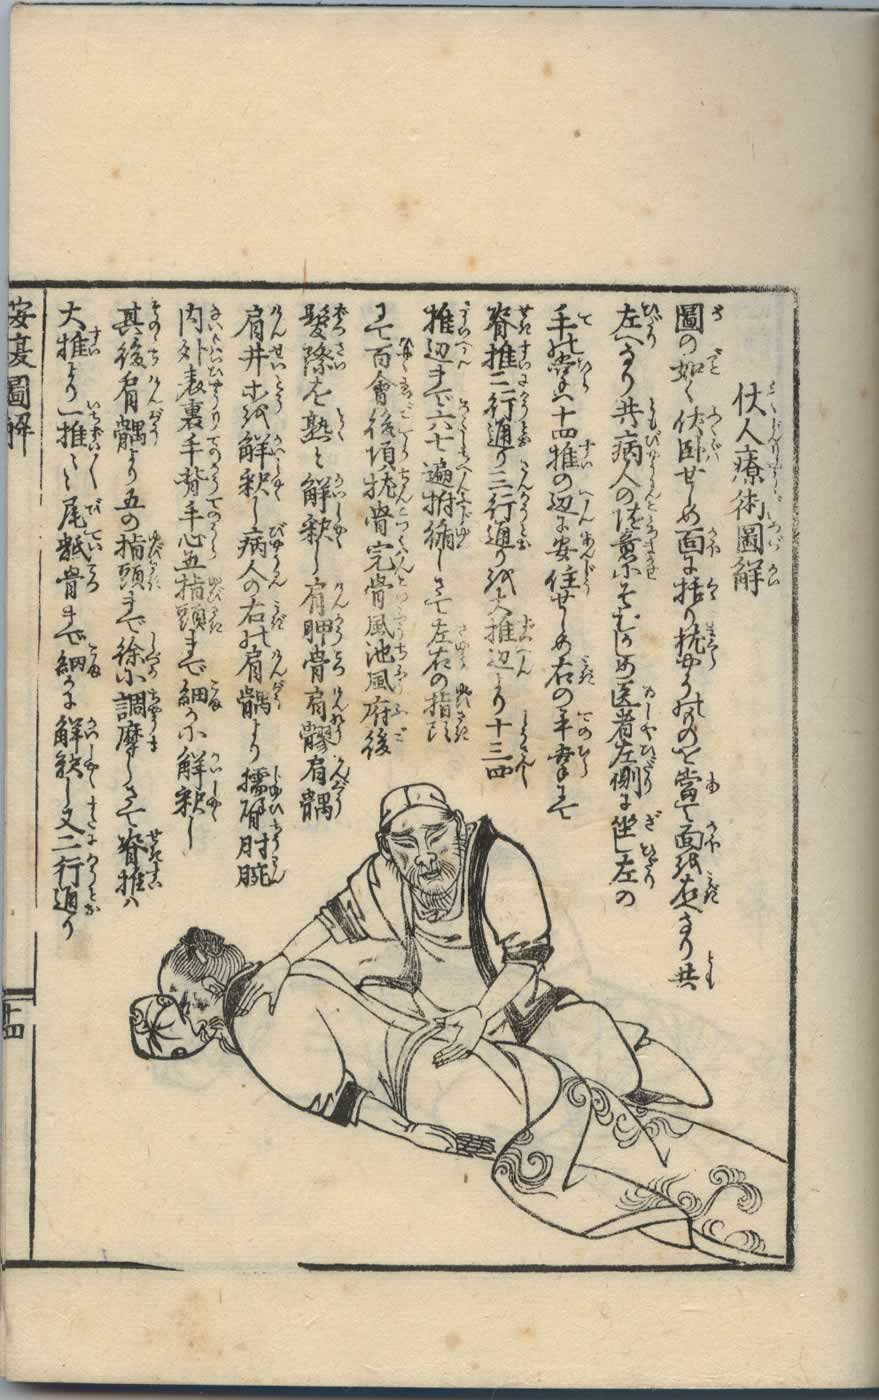 伏人療術圖解
圖の如く伏卧せしめ面に括り枕やうのものを當て面を右へなり共
左へなり共病人の随意にそむけしめ医者左側に坐し左の
手の掌を十四推の辺に安住せしめ右の手掌にて
脊推二行通り三行通りを大推辺より十三四
推辺まで六七遍拊循しさて左右の指頭
にて百會後頂枕骨完骨風池風府後
髪際を熟と解釈し肩胛骨肩髎肩髃
肩井等を解釈し病人の右の肩髃より臑臂肘腕
内外表裏手背手心五指頭まで細かに解釈し
其後肩髃より五の指頭まで徐に調摩しさて脊推は
大推より一推〻〻尾骶骨まで細かに解釈し又二行通り
按腹圖解
十四